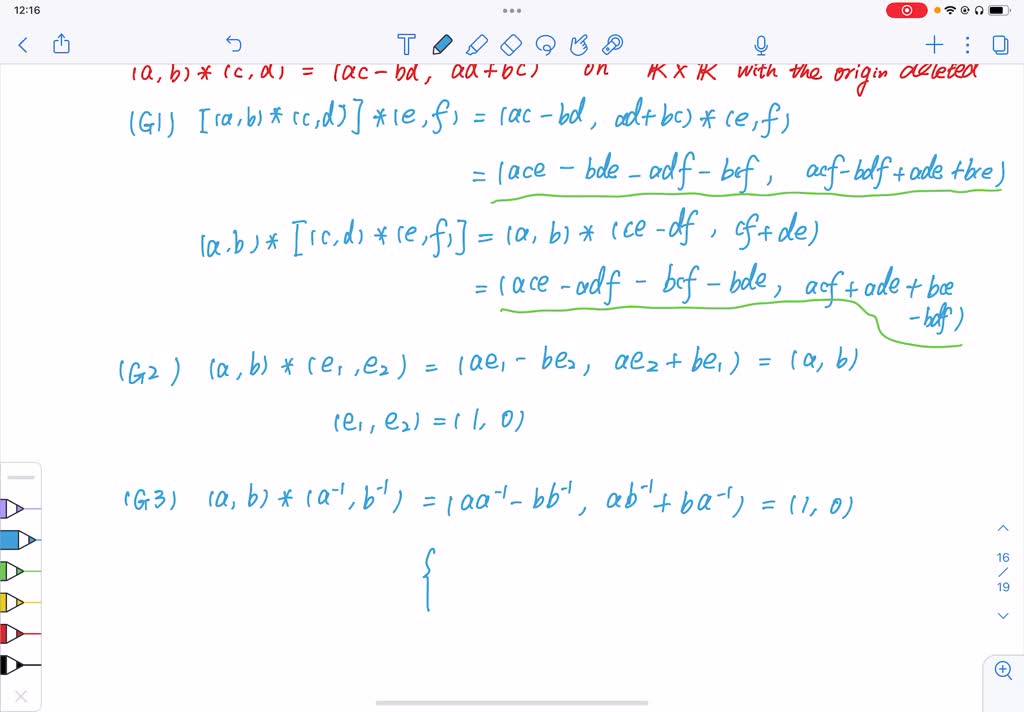 12:16
(a, b) * (c, d) = (ac - bd, ad + bc) on ℝ × ℝ with the origin deleted
(G1) [(a, b) * (c, d)] * (e, f) = (ac - bd, ad + bc) * (e, f)
= (ace - bde - adf - bcf, acf - bdf + ade + bce)
(a, b) * [(c, d) * (e, f)] = (a, b) * (ce - df, cf + de)
= (ace - adf - bcf - bde, acf + ade + bce
- bdf)
(G2) (a, b) * (e₁, e₂) = (ae₁ - be₂, ae₂ + be₁) = (a, b)
(e₁, e₂) = (1, 0)
(G3) (a, b) * (a⁻¹, b⁻¹) = (aa⁻¹ - bb⁻¹, ab⁻¹ + ba⁻¹) = (1, 0)
{
16
/
19